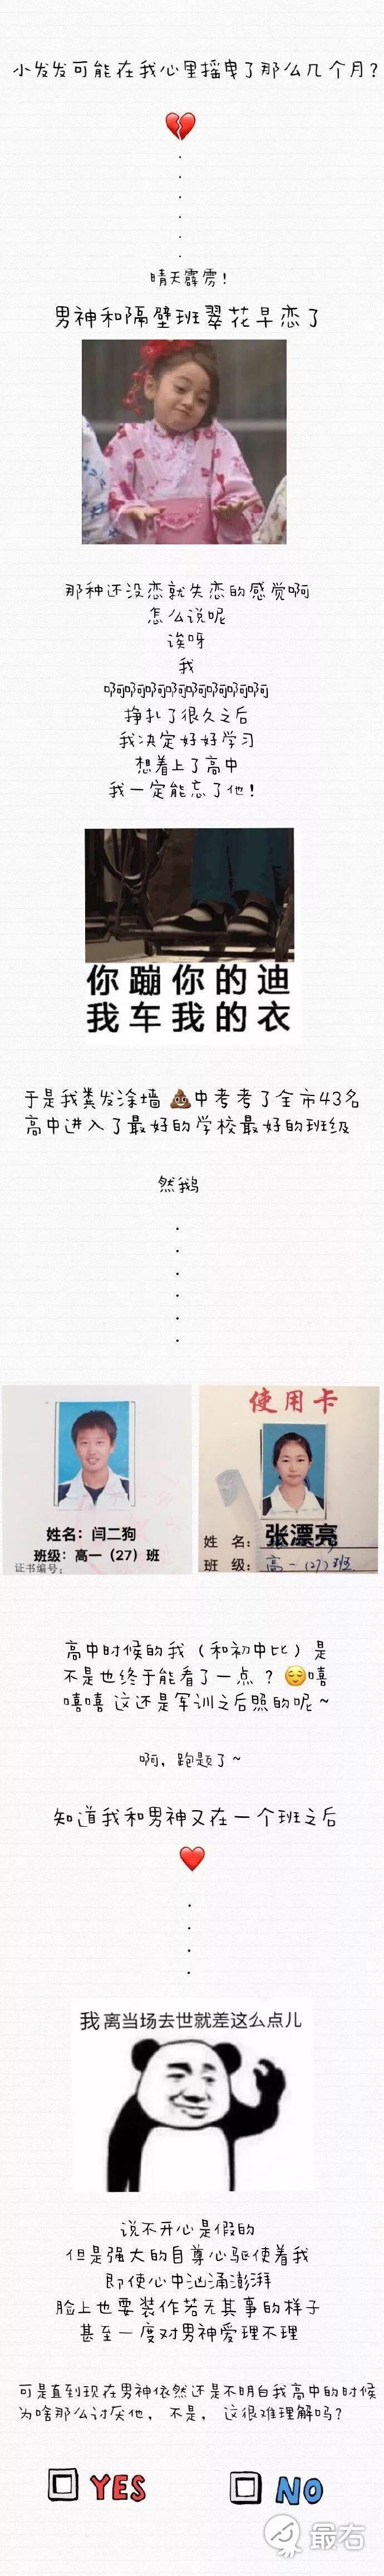 小发发可能在我心里摇曳了那么几个月?
晴天霹雳!
男神和隔壁班翠花早恋了
那种还没恋就失恋的感觉啊
怎么说呢
诶呀
我
啊啊啊啊啊啊啊啊啊啊
挣扎了很久之后
我决定好好学习
想着上了高中
我一定能忘了他!
你蹦你的迪
我车我的衣
于是我粪发涂墙💩中考考了全市43名
高中进入了最好的学校最好的班级
然鹅
姓名:闫二狗
班级:高一(27)班
证书编号:
使用卡
姓 名:张漂亮
班 级:高一(27)班
高中时候的我(和初中比)是
不是也终于能看了一点?😌嘻
嘻嘻 这还是军训之后照的呢~
啊,跑题了~
知道我和男神又在一个班之后
我离当场去世就差这么点儿
说不开心是假的
但是强大的自尊心驱使着我
即使心中汹涌澎湃
脸上也要装作若无其事的样子
甚至一度对男神爱理不理
可是直到现在男神依然还是不明白我高中的时候
为啥那么讨厌他,不是,这很难理解吗?
YES NO
最右